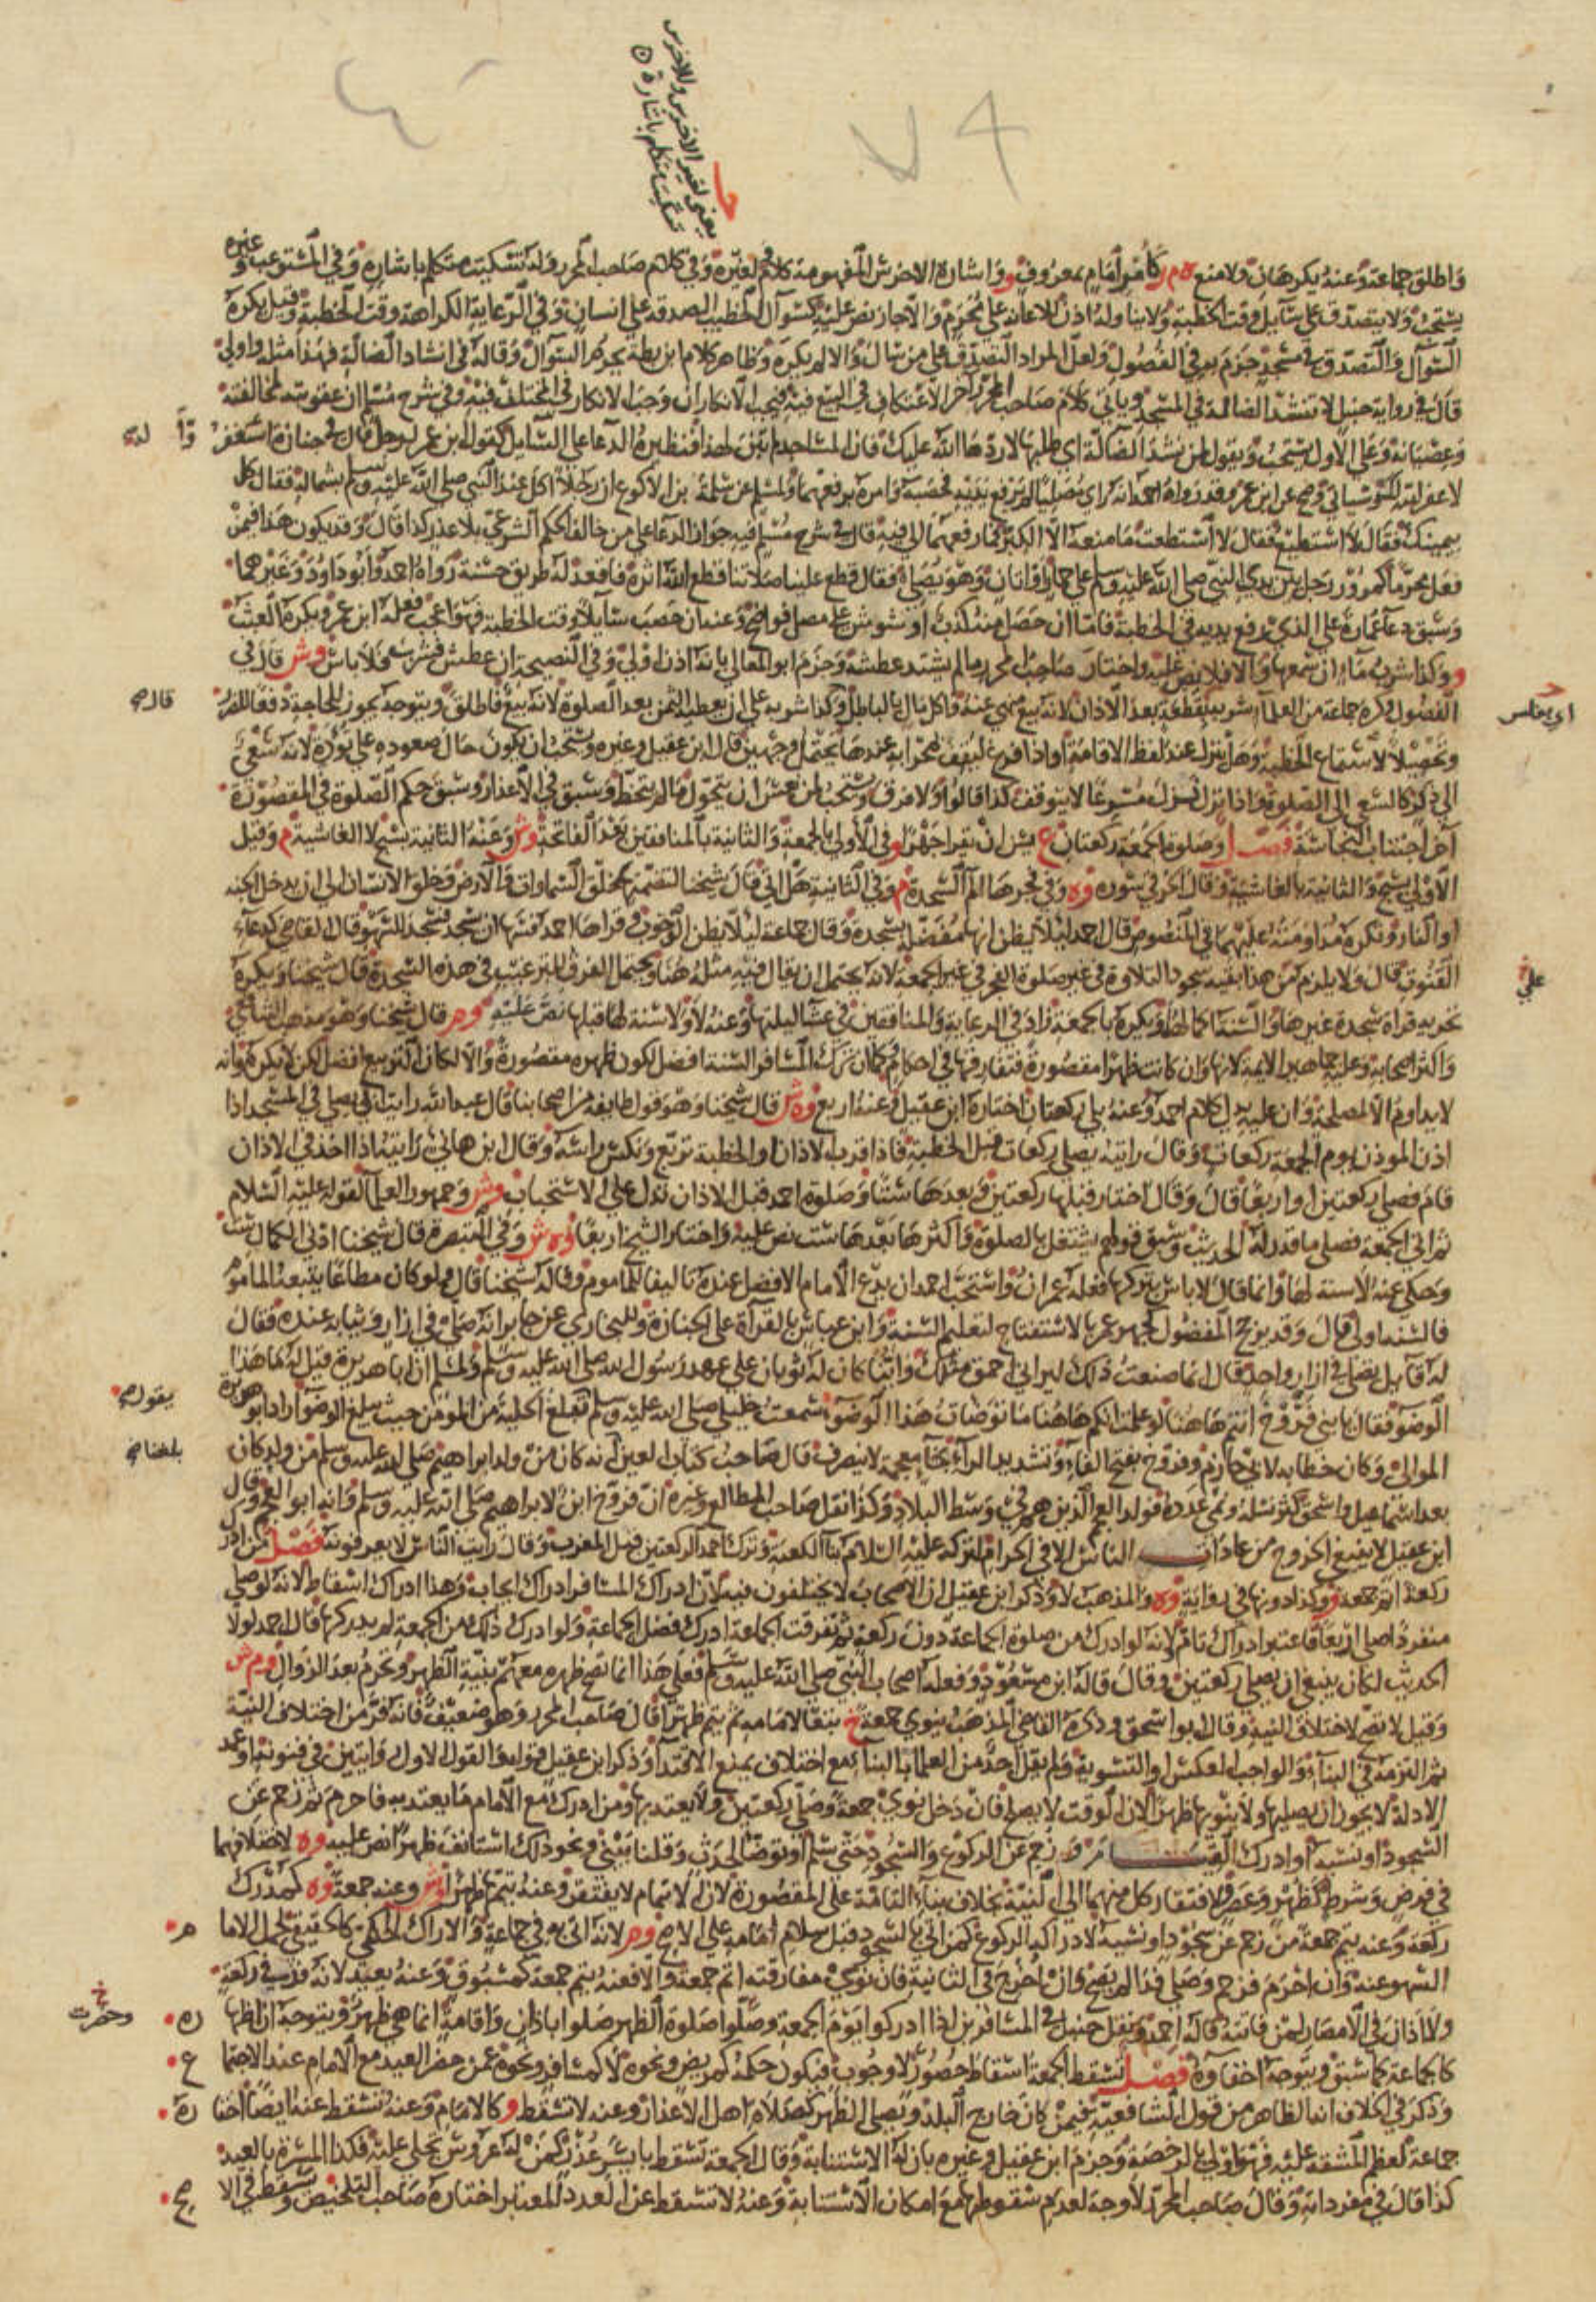 يعني لغير الاخرس وللاخرس
تسكيت متكلم باشارة
واطلق جماعة وعنه يكرهان ولا منع ه م ر كأمر إمام بمعروف و واشارة الاخرس المفهومة كلام لغيره وفي كلام صاحب المحرر وله تسكيت متكلم باشارة وفي المستوعب وغيره
يستحب ولا يتصدق على سائل وقت الخطبة ولا يناوله اذن للاعانة على محرم والا جاز نص عليه كسؤال الخطيب الصدقة على انسان وفي الرعاية الكراهة وقت الخطبة وقيل يكره
السؤال والتصدق في مسجد جزم به في الفصول ولعل المراد التصدق على من سأل والا لم يكره وظاهر كلام ابن بطة يحرم السؤال وقاله في انشاد الضالة فهذا مثله واولى
قال في رواية حنبل لا تنشد الضالة في المسجد وياتي كلام صاحب المحرر آخر الاعتكاف في البيع فيه فيجب الانكار ان وجب الانكار في المختلف فيه وفي شرح مسلم ان عقوبته لمخالفته
وعصيانه وعلى الاول يستحب ويقول لمن نشد الضالة اي طلبها لا ردها الله عليك فان المساجد لم تبن لهذا فنظيره الدعا على السائل كقول ابن عمر لرجل قال في جنازة استغفروا له
لا غفر الله لك وصح عن ابن عمر وقد رواه احمد انه راى مصليا لم يرفع يديه فحصبه وامره برفعهما ولمسلم عن سلمة بن الاكوع ان رجلا اكل عند النبي صلى الله عليه وسلم بشماله فقال كل
بيمينك فقال لا استطيع فقال لا استطعت ما منعه الا الكبر فما رفعهما الى فيه قال في شرح مسلم فيه جواز الدعا على من خالف الحكم الشرعي بلا عذر كذا قال وقد يكون هذا فيمن
فعل محرما كمرور رجل بين يدي النبي صلى الله عليه وسلم على حمار او اتان وهو يصلي فقال قطع علينا صلاتنا قطع الله اثره فاقعد له طريق حسنة رواه احمد وابو داود وغيرهما
وسبق دعا عمارة على الذي يرفع يديه في الخطبة فاما ان حصل منه كذب او تشويش على مصل فواضح وعنه ان حصب سائلا وقت الخطبة فهو اعجب فعله ابن عمر ويكره العبث
و وكذا شربه ماء ان سمعها والا فلا نص عليه واختار صاحب المحرر ما لم يشتد عطشه وجزم ابو المعالي بانه اذن اولى وفي النصيحة ان عطش فشرب فلا باس وش قال في
الفصول وكره جماعة من العلماء شربه بقطعة بعد الاذان لانه بيع منهي عنه واكل مال بالباطل وكذا شربه على ان يعطيه الثمن بعد الصلوة لانه بيع فاطلق ويتوجه يجوز للحاجة دفعا للضرر
وتحصيلا لاستماع الخطبة وهل ينزل عند لفظ الاقامة او اذا فرغ ليقف بمحرابه عندها يحتمل وجهين قال ابن عقيل وغيره ويستحب ان يكون حال صعوده على تؤدة لانه سعي
الى ذكر كالسعي الى الصلوة واذا نزل نزل مسرعا لا يتوقف كذا قالوا ولا فرق ويستحب لمن نعس ان يتحول ما لم يتخط وسبق في الاعذار وسبق حكم الصلوة في المقصورة
آخر اجتناب النجاسة فصل وصلوة الجمعة ركعتان ع يسن ان يقرا جهرا و في الاولى بالجمعة والثانية بالمنافقين بعد الفاتحة وش وعنه الثانية بسبح لا الغاشية م وقيل
الاولى بسبح والثانية بالغاشية وقال الخرقي سورة وه وفي فجرها الم السجدة م وفي الثانية هل اتى قال شيخنا لتضمنهما خلق السماوات والارض وخلق الانسان الى ان يدخل الجنة
او النار وتكره مداومته عليهما في المنصوص قال احمد لئلا يظن انها مفضلة بسجدة وقال جماعة لئلا يظن الوجوب وقراها احمد فسها ان يسجد فسجد للسهو قال القاضي كدعاء
القنوت قال ولا يلزم من هذا بقية سجود التلاوة في غير صلوة الفجر في غير الجمعة لانه يحتمل ان يقال فيه مثله هنا ويحتمل الفرق للترغيب في هذه السجدة قال شيخنا ويكره
تحريه قراة سجدة غيرها والسنة اكمالها ويكره بالجمعة زاد في الرعاية والمنافقين في عشا ليلتها وعنه لا ولا سنة لها قبلها نص عليه وم قال شيخنا وهو مذهب الشافعي
واكثر اصحابه وعليه جماهير الايمة لانها وان كانت ظهرا مقصورة فتفارقها في احكام وكما ان ترك المسافر السنة افضل لكون ظهره مقصورة والا لكان التربيع افضل لكن لا يكره وانه
لا يداوم الا لمصلحة وان عليه يدل كلام احمد وعنه بلى ركعتان اختاره ابن عقيل وعنه اربع وه ش قال شيخنا وهو قول طايفة من اصحابنا قال عبد الله رايت ابي يصلي في المسجد اذا
اذن المؤذن يوم الجمعة ركعات وقال رايته يصلي ركعات قبل الخطبة فاذا قرب الاذان او الخطبة تربع ونكس راسه وقال ابن هانئ رايته اذا اخذ في الاذان
قام فصلى ركعتين او اربعا قال وقال اختار قبلها ركعتين وبعدها ستا وصلوة احمد قبل الاذان تدل على الاستحباب وش وجمهور العلماء لقوله عليه السلام
ثم اتى الجمعة فصلى ما قدر له الحديث وسبق قولهم يشتغل بالصلوة واكثرها بعدها ست نص عليه واختار الشيخ اربعا وه ش وفي التبصرة قال شيخنا ادنى الكمال ست
وحكي عنه لا سنة لها وانما قال لا باس بتركها فعله عمران واستحب احمد ان يدع الامام الافضل عنده تاليفا للماموم وقاله شيخنا قال ولو كان مطاعا يتبعه الماموم
فالسنة اولى قال وقد يرجح المفضول كجهر عمر بالاستفتاح لتعليم السنة وابن عباس بالقراة على الجنازة وللبخاري عن جابر انه صلى في ازار وثيابه عنده فقال
له قائل تصلي في ازار واحد قال انما صنعت ذلك ليراني احمق مثلك واينا كان له ثوبان على عهد رسول الله صلى الله عليه وسلم ولمسلم ان ابا هريرة قيل له ما هذا
الوضوء فقال يا بني فروخ انتم هاهنا لو علمت انكم هاهنا ما توضات هذا الوضوء سمعت خليلي صلى الله عليه وسلم تبلغ الحلية من المؤمن حيث يبلغ الوضوء اراد ابو هريرة
الموالي وكان خطابه لابي حازم وفروخ بفتح الفاء وتشديد الراء بخاء معجمة لا ينصرف قال صاحب كتاب العين انه كان من ولد ابراهيم صلى الله عليه وسلم من ولد كان
بعد اسماعيل واسحق كثر نسله ونمى عدده فولد العجم الذين هم في وسط البلاد وكذا نقل صاحب المطالع وغيره ان فروخ ابن لابراهيم صلى الله عليه وسلم وانه ابو العجم وقال
ابن عقيل لا ينبغي الخروج من عادات الناس الا في الحرام لتركه عليه السلام بنا الكعبة وترك احمد الركعتين قبل المغرب وقال رايت الناس لا يعرفونه فصل من ادرك
ركعة اتم جمعة و وكذا دونها في رواية وه والمذهب لا وذكر ابن عقيل ان الاصحاب لا يختلفون فيه لان ادراك المسافر ادراك ايجاب وهذا ادراك اسقاط لانه لو صلى
منفردا صلى اربعا فاعتبر ادراك تام لانه لو ادرك من صلوة الجماعة دون ركعة ثم تفرقت الجماعة ادرك فضل الجماعة ولو ادرك ذلك من الجمعة لم يدركها قال احمد لولا
الحديث لكان ينبغي ان يصلي ركعتين وقال قاله ابن مسعود وفعله اصحاب النبي صلى الله عليه وسلم فعلى هذا انما تصح ظهره معهم بنية الظهر وتحرم بعد الزوال وم ش
وقيل لا تصح لاختلاف النية وقال ابو اسحق وذكره القاضي المذهب ينوي جمعة خ تبعا لامامه ثم يتم ظهرا قال صاحب المحرر وهو ضعيف فانه فر من اختلاف النية
ثم التزمه في البناء والواجب العكس او التسوية ولم يقل احد من العلماء بالبناء مع اختلاف يمنع الاقتدا وذكر ابن عقيل في القول الاول روايتين في فنونه او عمد
الادلة لا يجوز ان يصليها ولا ينويها ظهرا لان الوقت لا يصلح فان دخل نوى جمعة وصلى ركعتين ولا يعتد بها ومن ادرك مع الامام ما يعتد به فاحرم ثم زحم عن
السجود او نسيه او ادرك القيام وزحم عن الركوع والسجود حتى سلم او توضا لحدث وقلنا يبني ونحو ذلك استانف ظهرا نص عليه وه لاختلافهما
في فرض وشرط كظهر وعصر ولافتقار كل منهما الى النية بخلاف بناء التامة على المقصورة لان الاتمام لا يفتقر وعنه يتم ظهرا وش وعنه جمعة وه كمدرك
ركعة وعنه يتم جمعة من زحم عن سجود او نسيه لادراكه الركوع كمن اتى بالسجود قبل سلام امامه على الاصح وم لانه اتى به في جماعة والادراك الحكمي كالحقيقي لحمل الامام
السهو عنه وان احرم فزحم وصلى فذا لم يصح وان اخرج في الثانية فان نوى مفارقته اتم جمعة والا فعنه يتم جمعة كمسبوق وعنه يعيد لانه فذ في ركعة
ولا اذان في الامصار لمن فاتته قاله احمد ونقل حنبل في المسافرين اذا ادركوا يوم الجمعة وصلوا صلوة الظهر صلوا باذان واقامة انما هي ظهر ويتوجه اظهارها
كالجماعة كما سبق ويتوجه اخفاوه فصل تسقط الجمعة اسقاط حضور لا وجوب فيكون حكمه كمريض ونحوه لا كمسافر ونحوه عمن حضر العيد مع الامام عند الاجتماع
وذكر في الخلاف انه الظاهر من قول الشافعية فيمن كان خارج البلد ويصلي الظهر كصلاة اهل الاعذار وعنه لا تسقط و كالامام وعنه تسقط عنه ايضا اختاره
جماعة لعظم المشقة عليه فهو اولى بالرخصة وجزم ابن عقيل وغيره بان له الاستنابة وقال الجمعة تسقط بايسر عذر كمن له عروس تجلى عليه فكذا المسرة بالعيد
كذا قال في مفرداته وقال صاحب المحرر لا وجه لعدم سقوطها مع امكان الاستنابة وعنه لا تسقط عن العدد المعتبر اختاره صاحب التلخيص وتسقط في الاصح